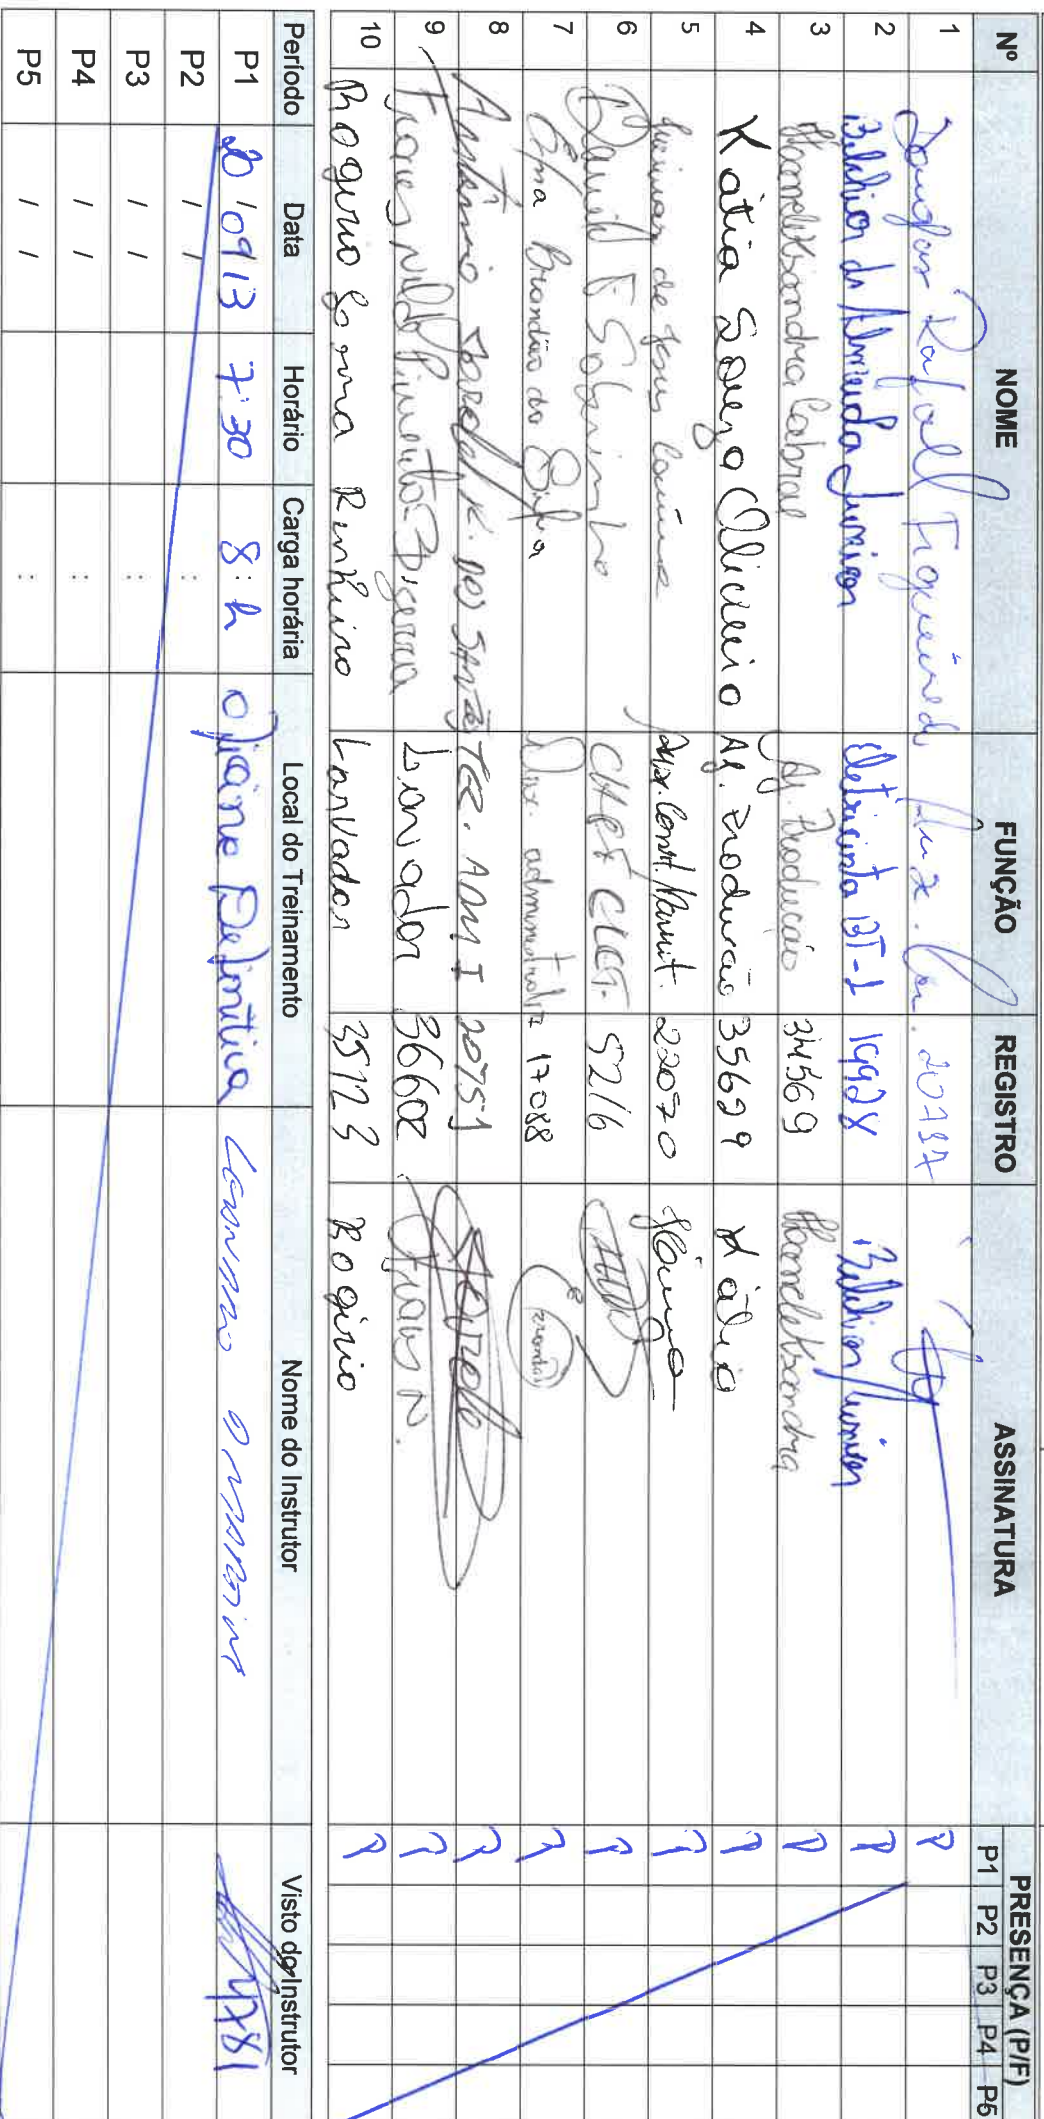 Nº NOME FUNÇÃO REGISTRO ASSINATURA PRESENÇA (P/F)
P1 P2 P3 P4 P5
1 Douglas Rafaell Figueiredo Aux. 20137 P
2 Belchior de Almeida Junior Eletricista BT-1 19928 Belchior Junior P
3 Hamelekssandra Cabral Ag. Producão 34569 Hamelekssandra P
4 Kátia Souza Oliveira Ag. Producão 35629 Kátia P
5 de Jesus Aux. Const. Manut. 22070 P
6 Daniel E Sobrinho CHEFE ELET. 5216 P
7 Edna Brandão da Silva Aux. administrativa 17088 P
8 Antônio K. DOS SANTOS TEC. ADM I 20751 P
9 Pimenta Bezerra Lavador 36602 N. P
10 Rogerio Souza Pinheiro Lavador 35123 Rogério P
Período Data Horário Carga horária Local do Treinamento Nome do Instrutor Visto do Instrutor
P1 20/09 13 7:30 8:h Oficina Definitiva 4781
P2 / / :
P3 / / :
P4 / / :
P5 / / :